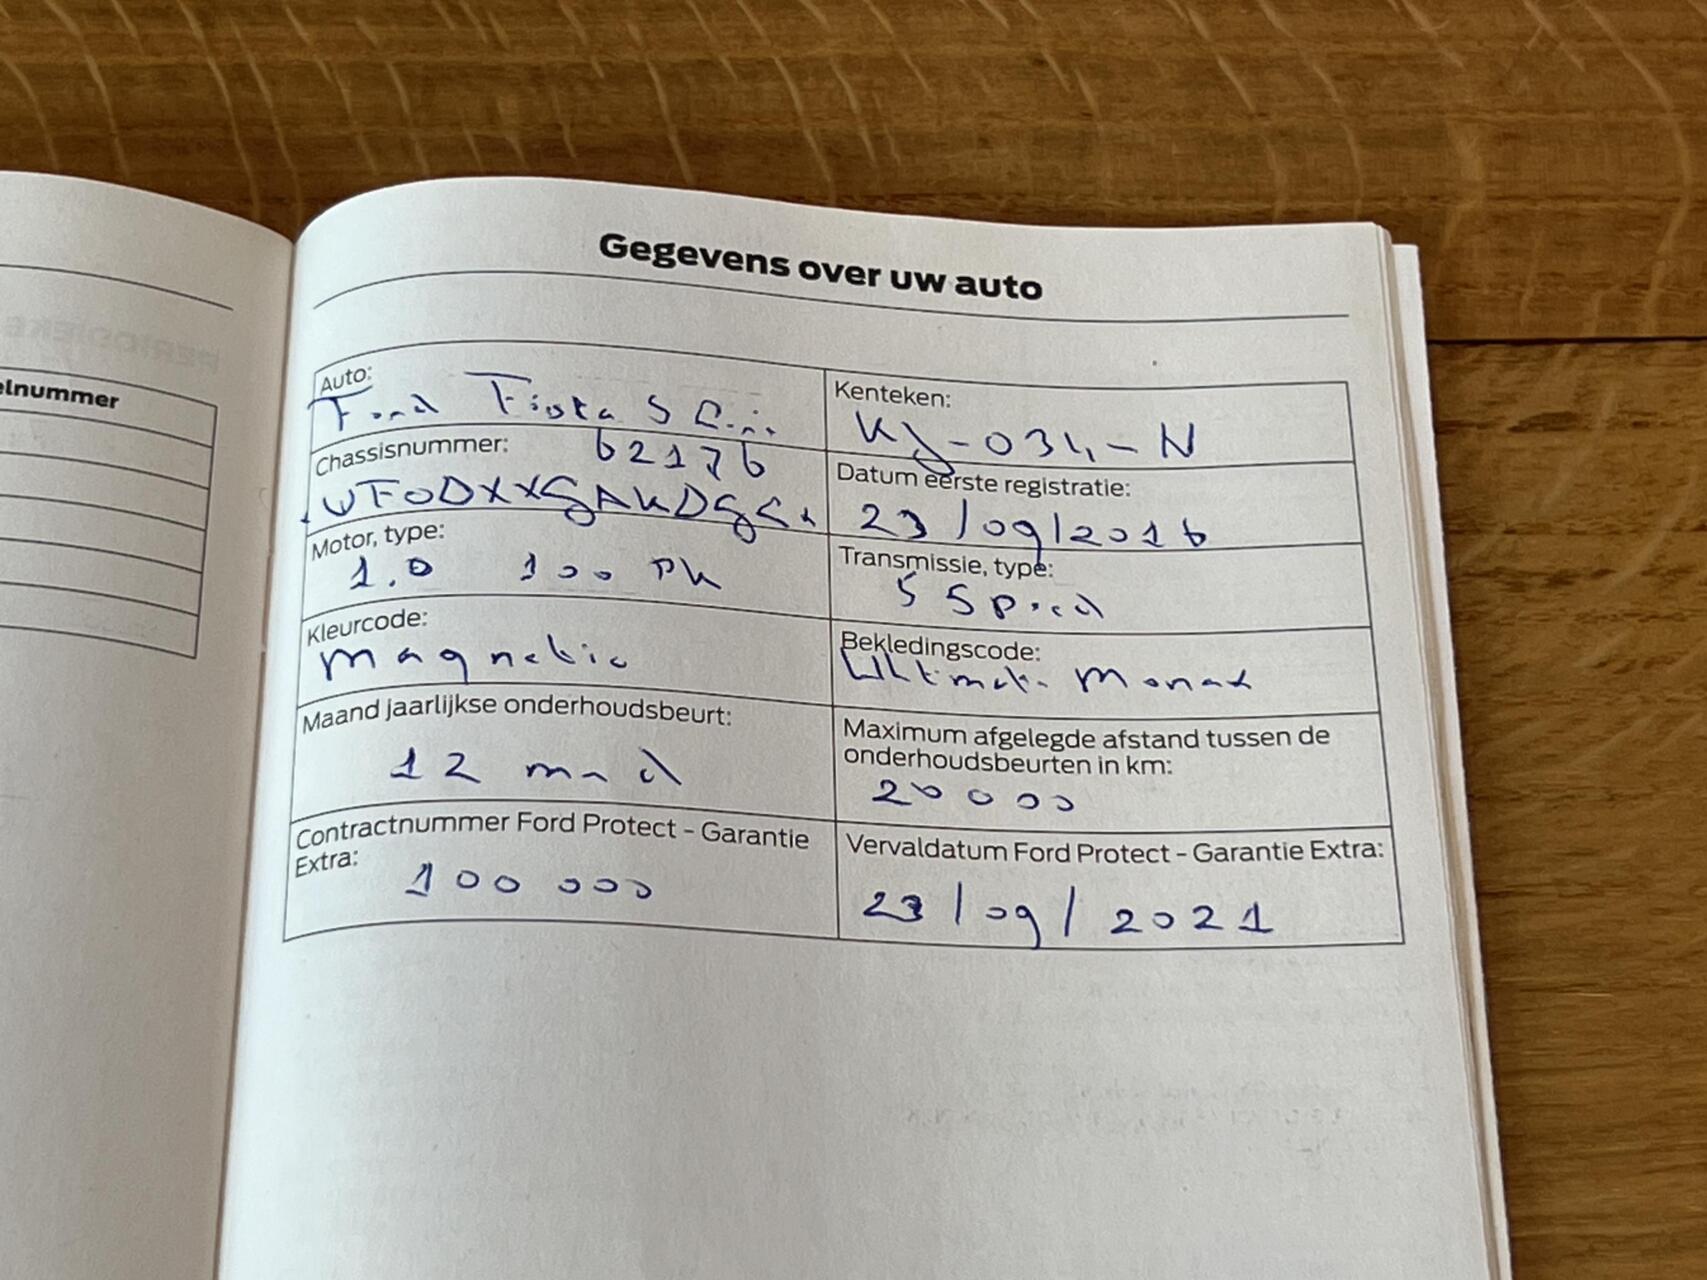 elnummer
Gegevens over uw auto
Auto:
Ford Fiesta S
Kenteken:
Chassisnummer: 62176
Datum eerste registratie:
23/09/2016
Motor, type:
1.0 100 PK
Transmissie, type:
5 Speed
Kleurcode:
Magnetic
Bekledingscode:
Maand jaarlijkse onderhoudsbeurt:
12 mnd
Maximum afgelegde afstand tussen de
onderhoudsbeurten in km:
20 000
Contractnummer Ford Protect - Garantie
Extra:
100 000
Vervaldatum Ford Protect - Garantie Extra:
23/09/2021